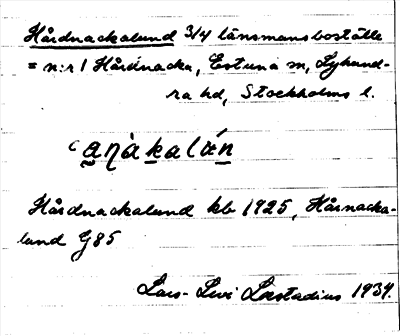 Hårdnackalund 3/4 länsmansboställe
= n:r 1 Hårdnacka, Estuna sn, Lyhund-
ra hd, Stockholms l.
Hårdnackalund kb 1925, Hårnacka-
lund G85
Lars-Levi Læstadius 1934.